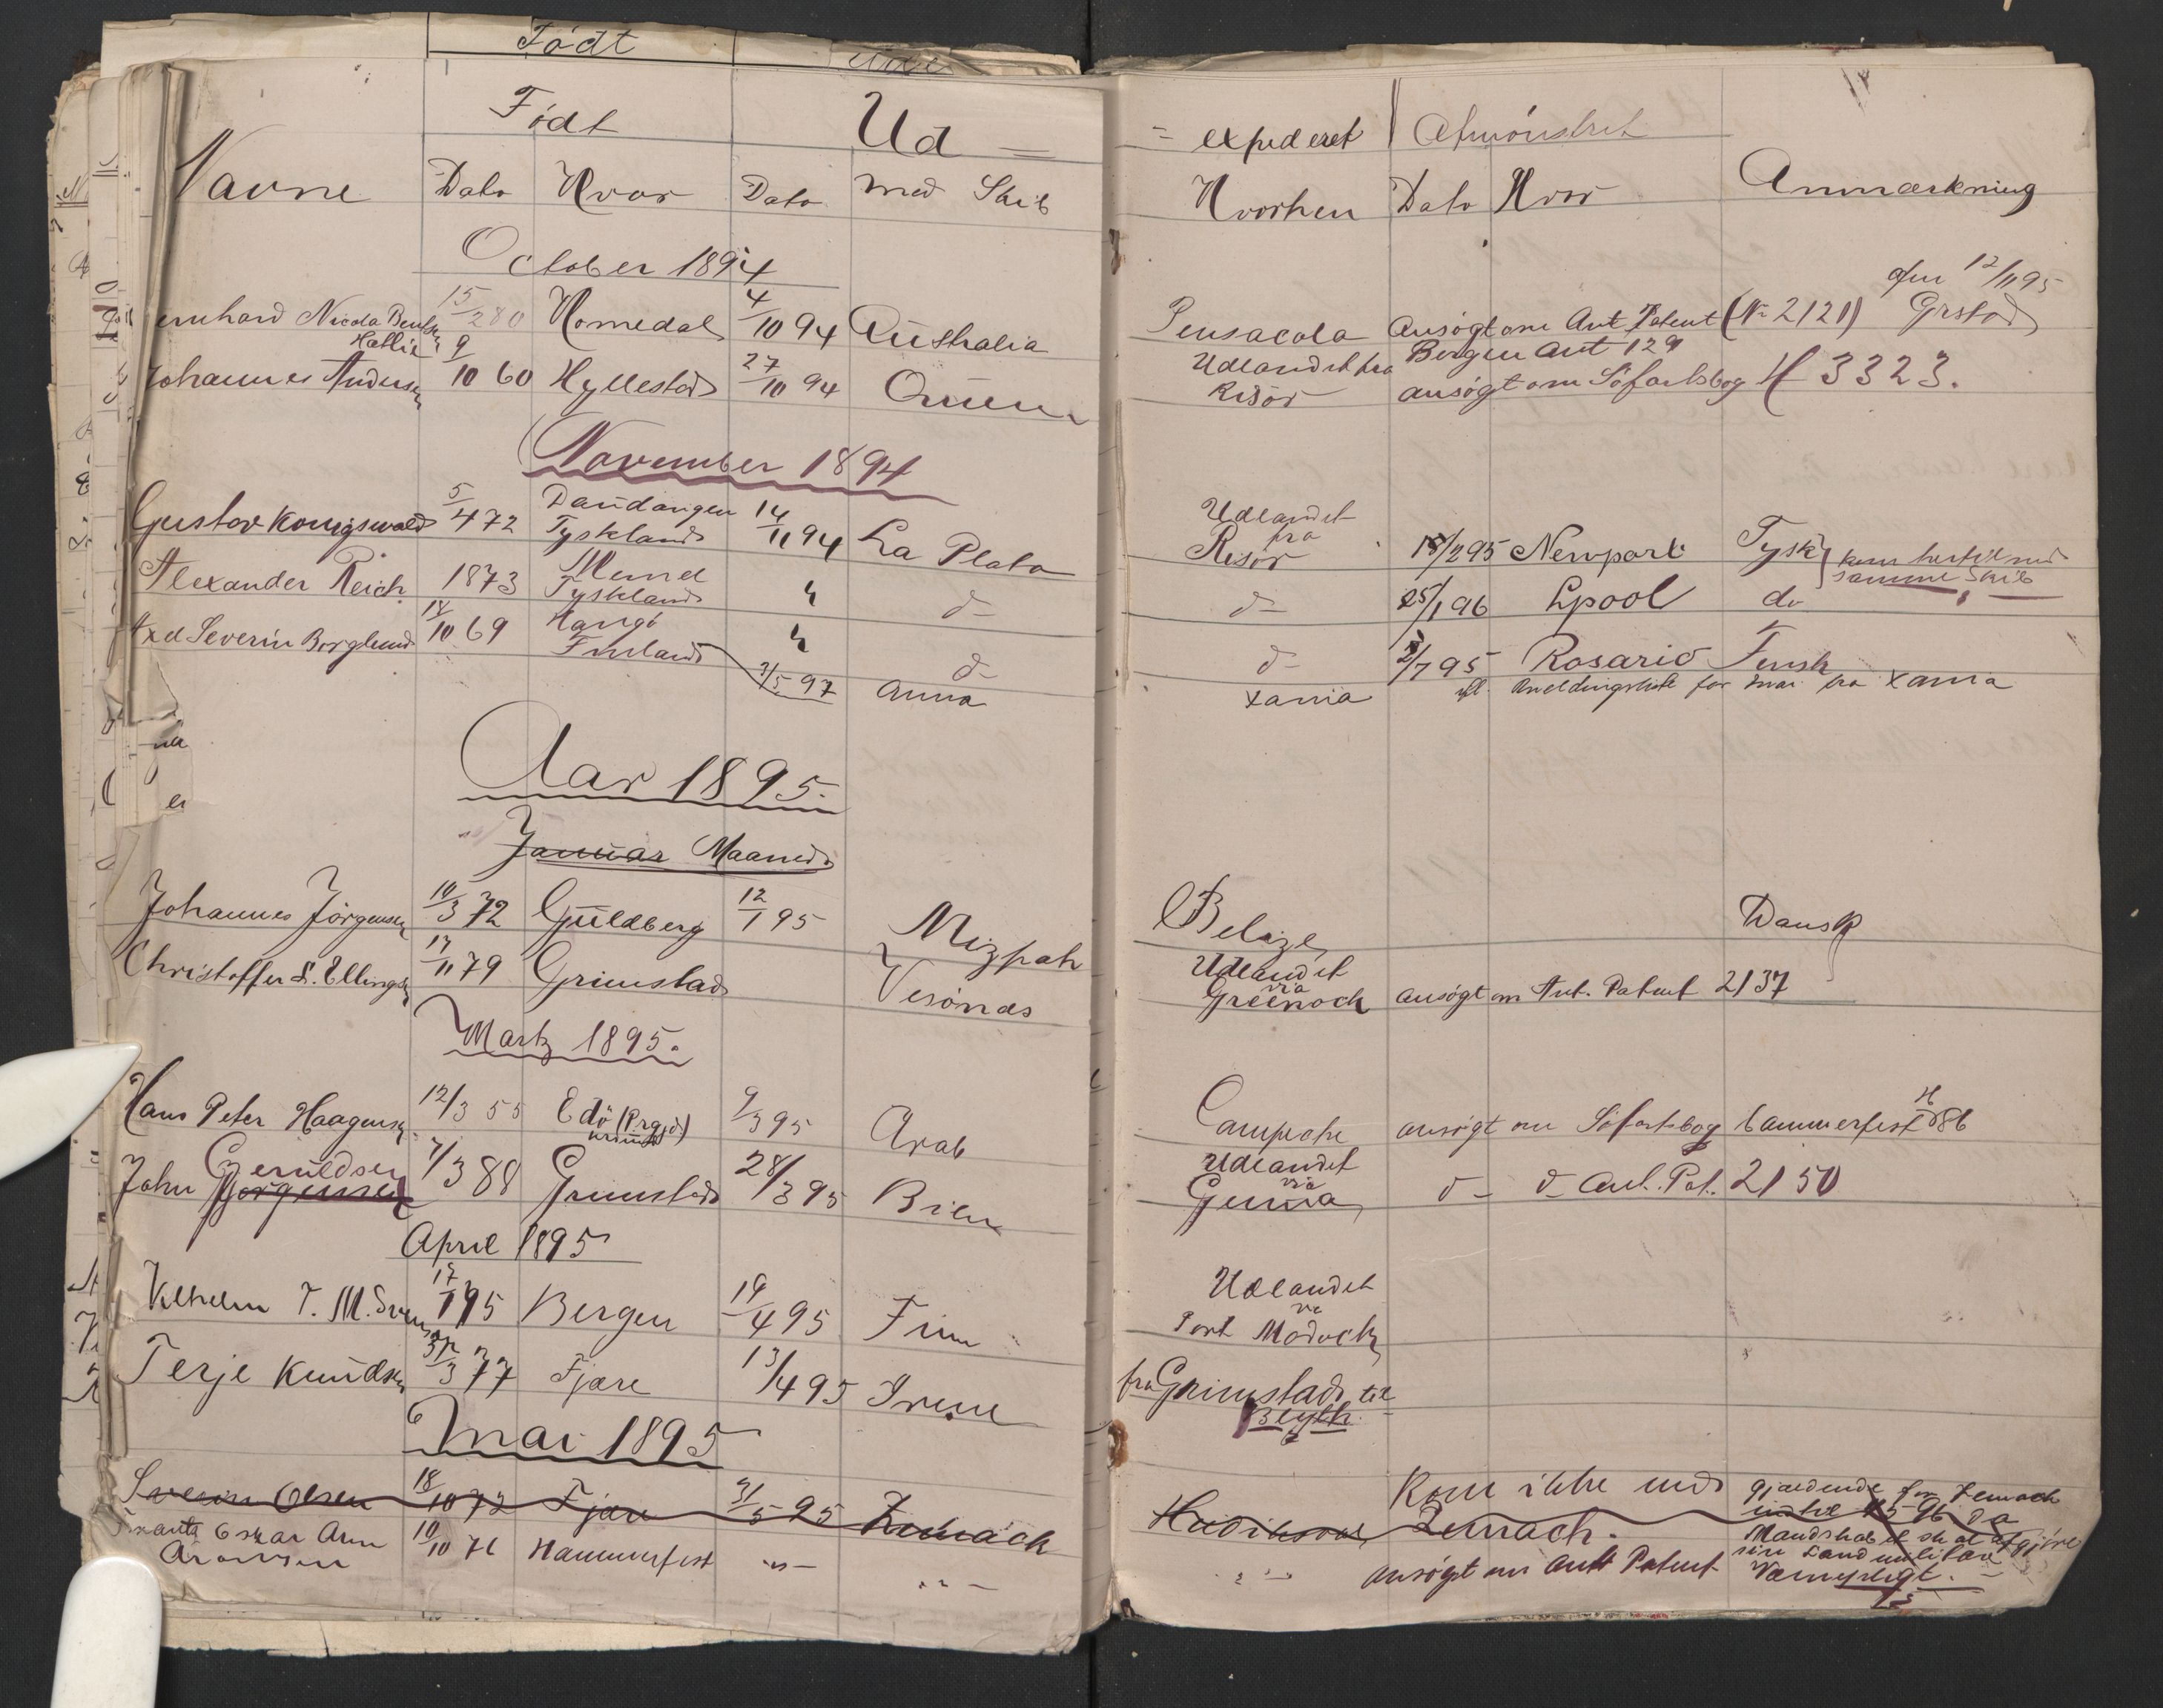 Født
Født Ud = = expederet Afmönstret
Navne Dato Hvor Dato med Skib Hvorhen Dato Hvor Anmærkning
October 1894
ernhard Nicolai 15/2 80 Homedal 4/10 94 Australia Pensacola Ansøgt om Ant Patent (No 2121) 12/11 95 Grstad
Johannes Andersen 9/10 60 Hyllestad 27/10 94 Udlandet fra Risør Bergen Ant 129 ansøgt om Søfartsbog H 3323.
November 1894
Gustav Konigswald 5/4 72 Tyskland 14/11 94 La Plata Udlandet fra Risør 18/2 95 Newport Tysk samme Skib
Alexander Reich 1873 Memel Tyskland " d- d- 25/1 96 Lpool do
Axel Severin Borglund 14/10 69 Hangö Finland " d- d- 2/7 95 Rosario Finsk
7/5 97 Anna Xania Anmeldingsliste for Mai fra Xania
Aar 1895.
Januar Maaned
Johannes Jörgensen 10/3 72 Guldberg 12/1 95 Mizpah Belize Dansk
Christoffer S. Ellingsen 17/11 79 Grimstad Vesönæs Udlandet via Greenock ansøgt om Ant. Patent 2137
Martz 1895.
Hans Peter Haagensen 12/3 55 Edö (Prgjd.) 9/3 95 Arab Campeche ansøgt om Söfartsbog Hammerfest H 86
John Gjeruldsen Jørgensen 7/3 88 Grimstad 28/3 95 Bien Udlandet via d- d- Ant. Pat. 2150
April 1895
Vilhelm T. M. 17/1 95 Bergen 19/4 95 Finn Udlandet via Port Madock
Terje Knudsen 31/3 77 Fjære 13/4 95 Irene fra Grimstad til Blyth
Mai 1895
Severin Olsen 18/10 72 Fjære 3/5 95 Zemach Hudiksval Kom ikke med Zemach. gjældende for Zemach indtil da Mandskabet skal afgjøre sin Landmilitære Værnepligt.
Oskar Arn Aronsen 10/10 76 Hammerfest -"- -"- -"- ansøgt om Antt Patent